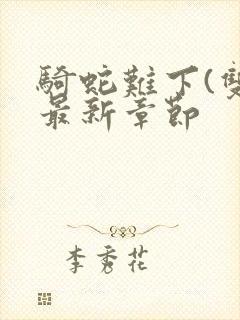 騎蛇難下(雙
最新章節
李秀花